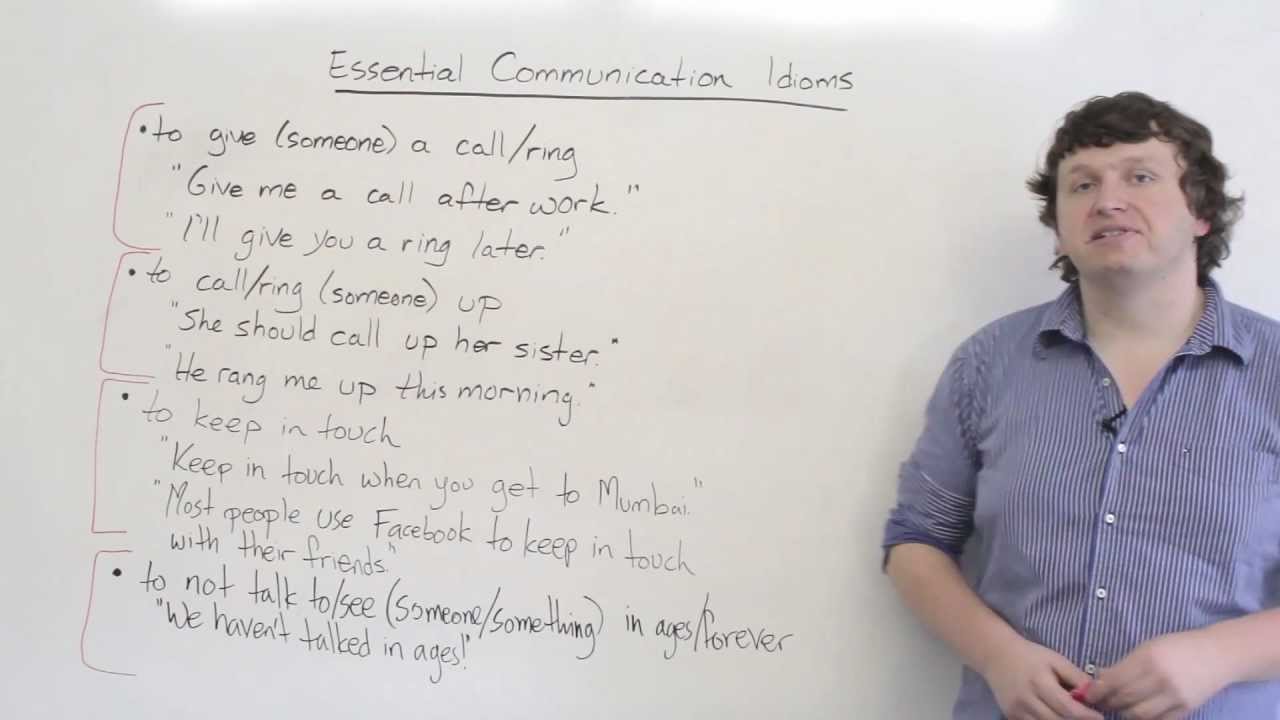 Essential Communication Idioms
• to give (someone) a call/ring
"Give me a call after work."
"I'll give you a ring later."
• to call/ring (someone) up
"She should call up her sister."
"He rang me up this morning."
• to keep in touch
"Keep in touch when you get to Mumbai."
"Most people use Facebook to keep in touch
with their friends."
• to not talk to/see (someone/something) in ages/forever
"We haven't talked in ages!"